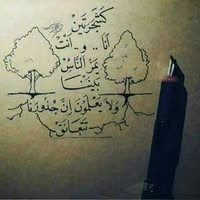 كشجرتين
أنا .. و .. أنت
يمر الناس
بيننا
ولا يعلمون إن جذورنا
تتعانق